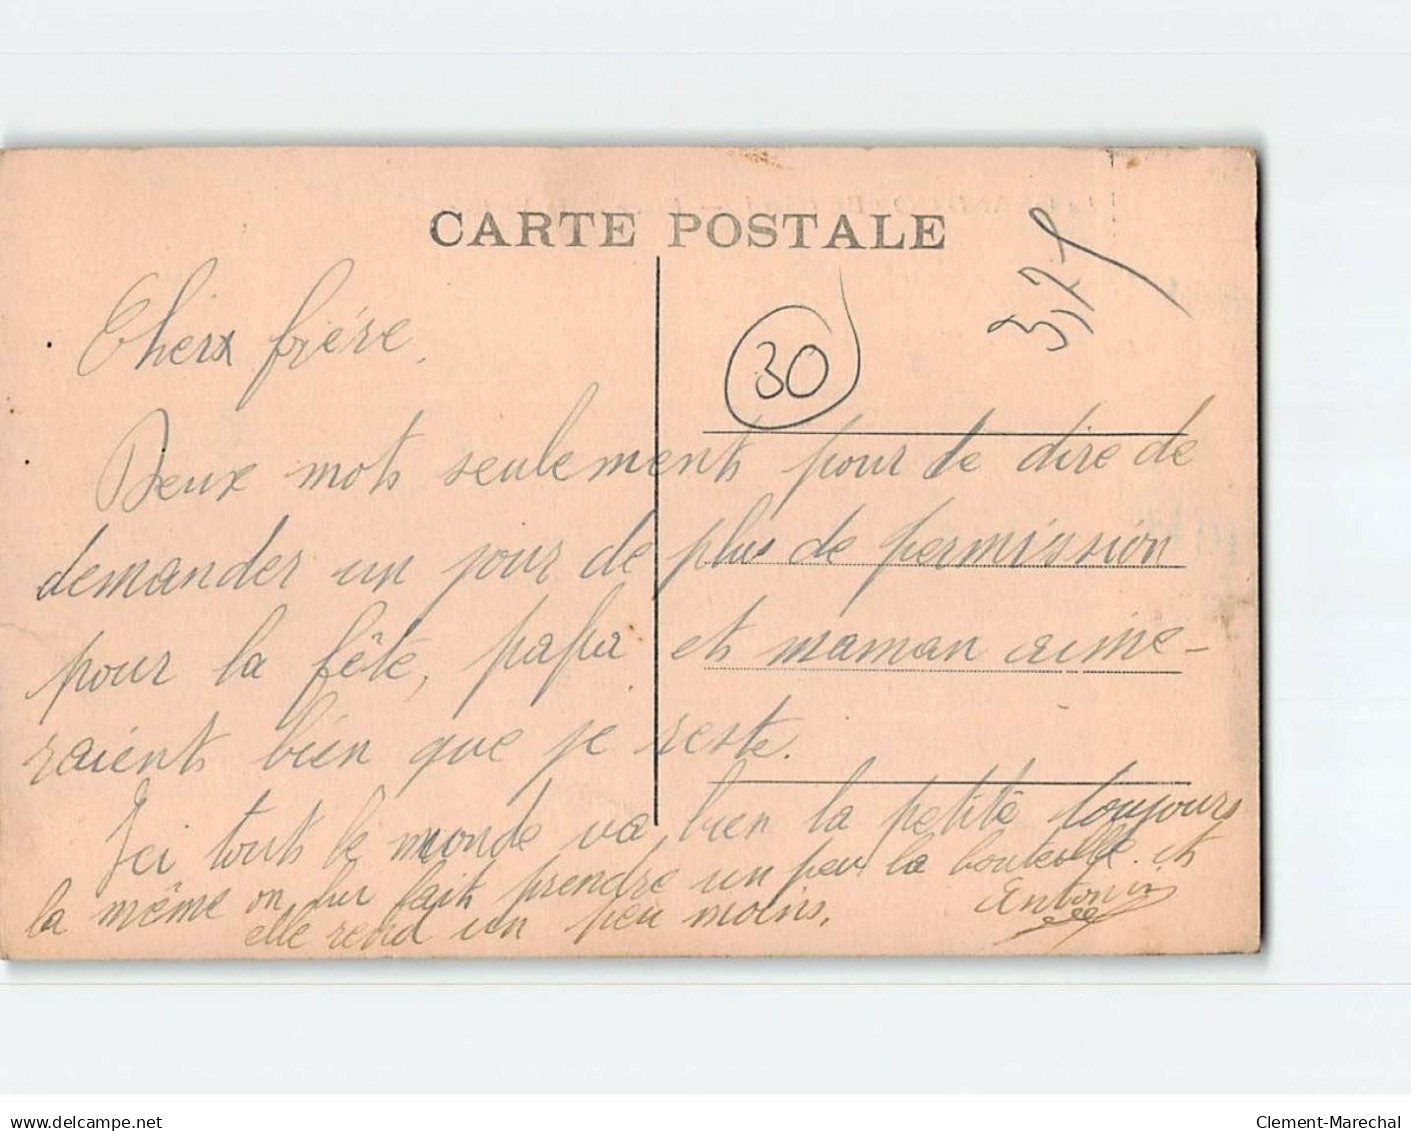 CARTE POSTALE
30
Cheix frière.
Deux mots seulements pour te dire de
demander un jour de plus de permission
pour la fête, papa et maman aime-
raients bien que je reste.
Ici touts le monde va bien la petite toujours
la même on lui fait prendre un peu la bouteille. et
elle rend un peu moins.
Antonin
delcampe.net
Clement-Marechal